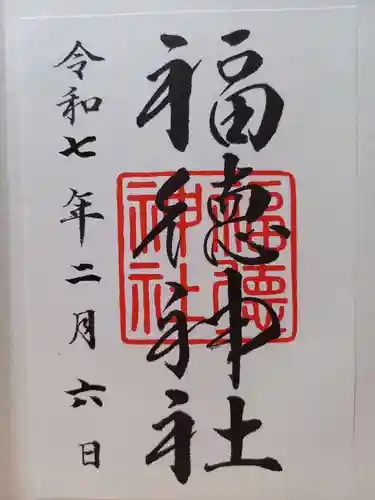 福徳神社
福德神社
令和七年二月六日